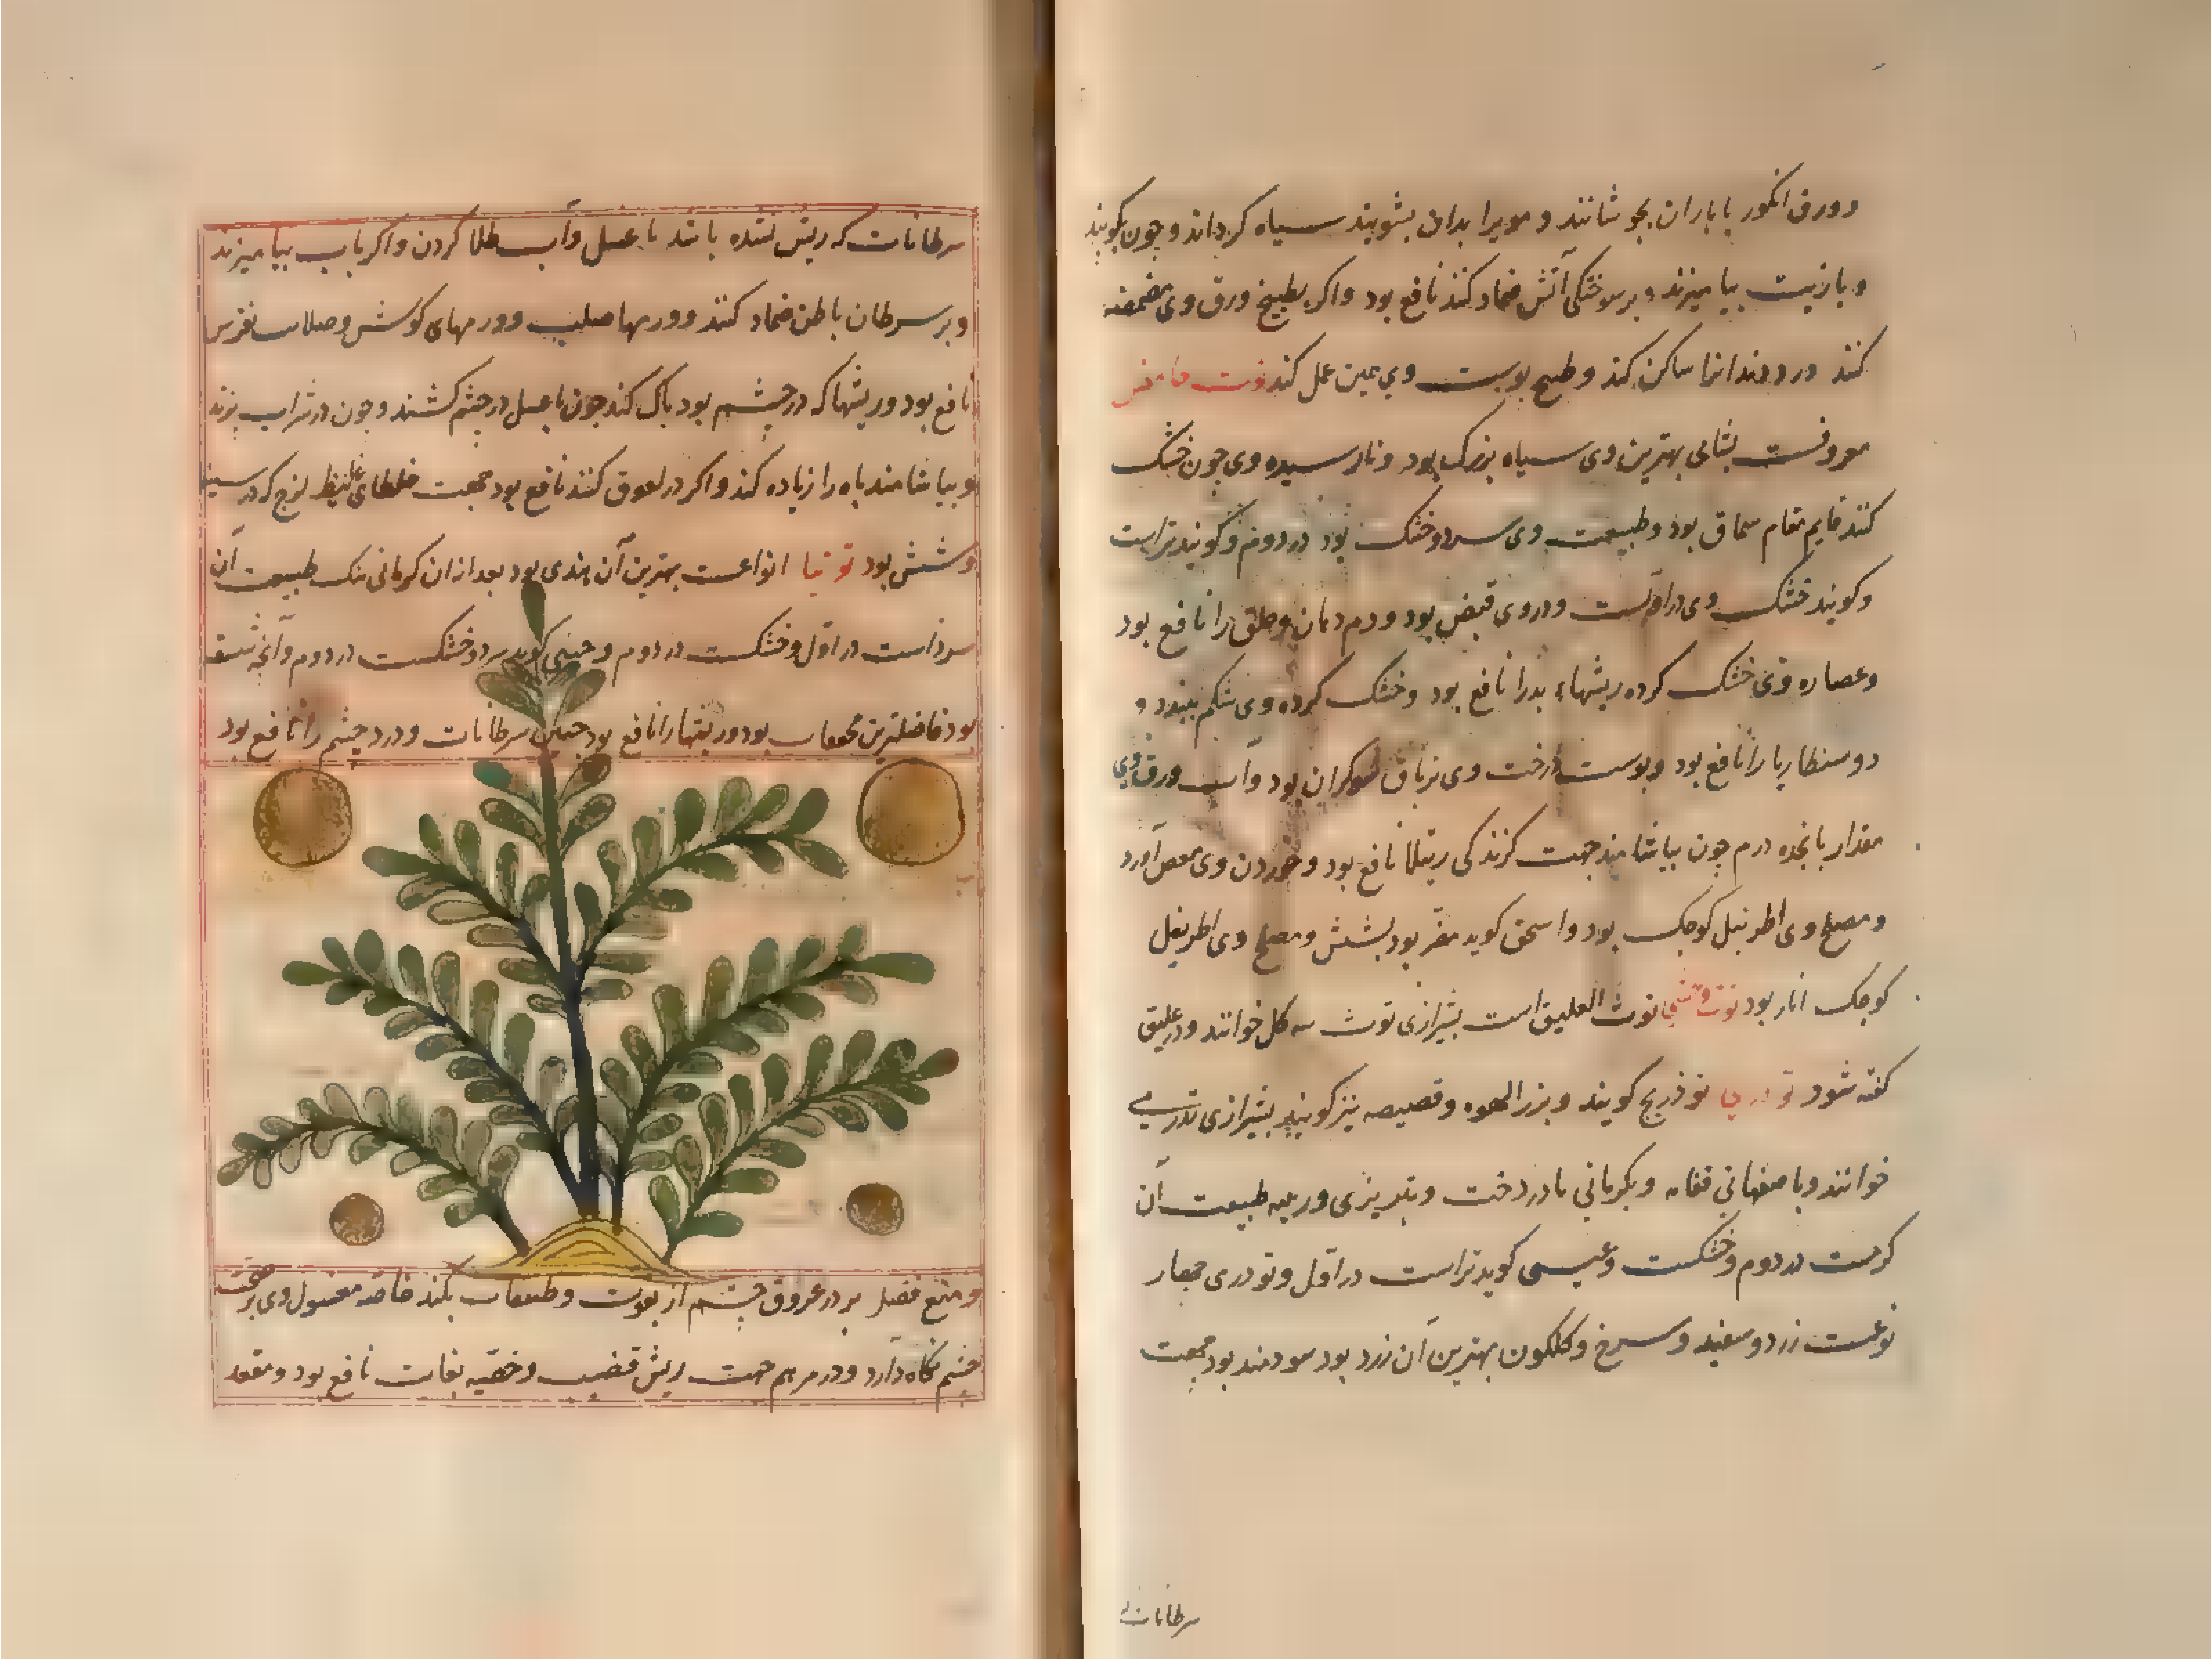 و ورق انکور با باران بجوشانند و مویرا بدان بشویند سیاه کرداند و چون بکوبند
و با زیت بیامیزند و بر سوختکی آتش ضماد کنند نافع بود و اکر بطبیخ ورق وی مضمضه
کنند درد دندانها ساکن کند و طبیخ پوست وی همین عمل کند توت حامض
معروفست بشامی بهترین وی سیاه بزرک بود و نارسیده وی چون خشک
کنند قایم مقام سماق بود و طبیعت وی سرد و خشک بود در دوم و کویند تر است
و کویند خشک وی در اولست و در وی قبض بود و ورم دهان و حلق را نافع بود
و عصاره وی خشک کرده ریشهاء بد را نافع بود و خشک کرده وی شکم ببندد و
دوسنطاریا را نافع بود و پوست درخت وی تریاق شوکران بود و آب ورق وی
مقدار پانجده درم چون بیاشامند جهت کزندکی رتیلا نافع بود و خوردن وی مغص آورد
و مصلح وی اطریفل کوچک بود و اسحق کوید مضر بود بشش و مصلح وی اطریفل
کوچک انار بود توت وحشی توث العلیق است بشیرازی توث سه کل خوانند و در علیق
کفته شود تودری تودریج کویند و بزر الهوه و قصیصه نیز کویند بشیرازی تدری
خوانند و باصفهانی قدامه و بکرمانی مادردخت و بتبریزی وریه طبیعت آن
کرمست در دوم و خشکست و عیسی کوید تر است در اول و تودری چهار
نوعست زرد و سفید و سرخ و کلکون بهترین آن زرد بود سودمند بود جهت
سرطانات
سرطانات که ریش نشده باشد با عسل و آب طلا کردن و اکر باب بیامیزند
و بر سرطان باطن ضماد کنند و ورمها صلب و ورمهای کوش و صلابت نقرس
نافع بود و ریشها که در چشم بود پاک کند چون با عسل در چشم کشند و چون در شراب پزند
و بیاشامند باه را زیاده کند و اکر در لعوق کنند نافع بود جهت خلطهای غلیظ لزج که در سینه
و شش بود توتیا انواعست بهترین آن هندی بود بعد از ان کرمانی تنک طبیعت آن
سرد است در اول و خشکست در دوم و حبیش کوید سرد و خشکست در دوم و آنچه شسته
بود فاضلترین مجففات بود و ریشها را نافع بود جهت سرطانات و درد چشم را نافع بود
و منع فضل بد در عروق چشم از نفوذ و طبقات بکند خاصه مغسول وی بر صحت
چشم نکاه دارد و در مرهم جهت ریش قضیب و خصیه بغایت نافع بود و مقعد